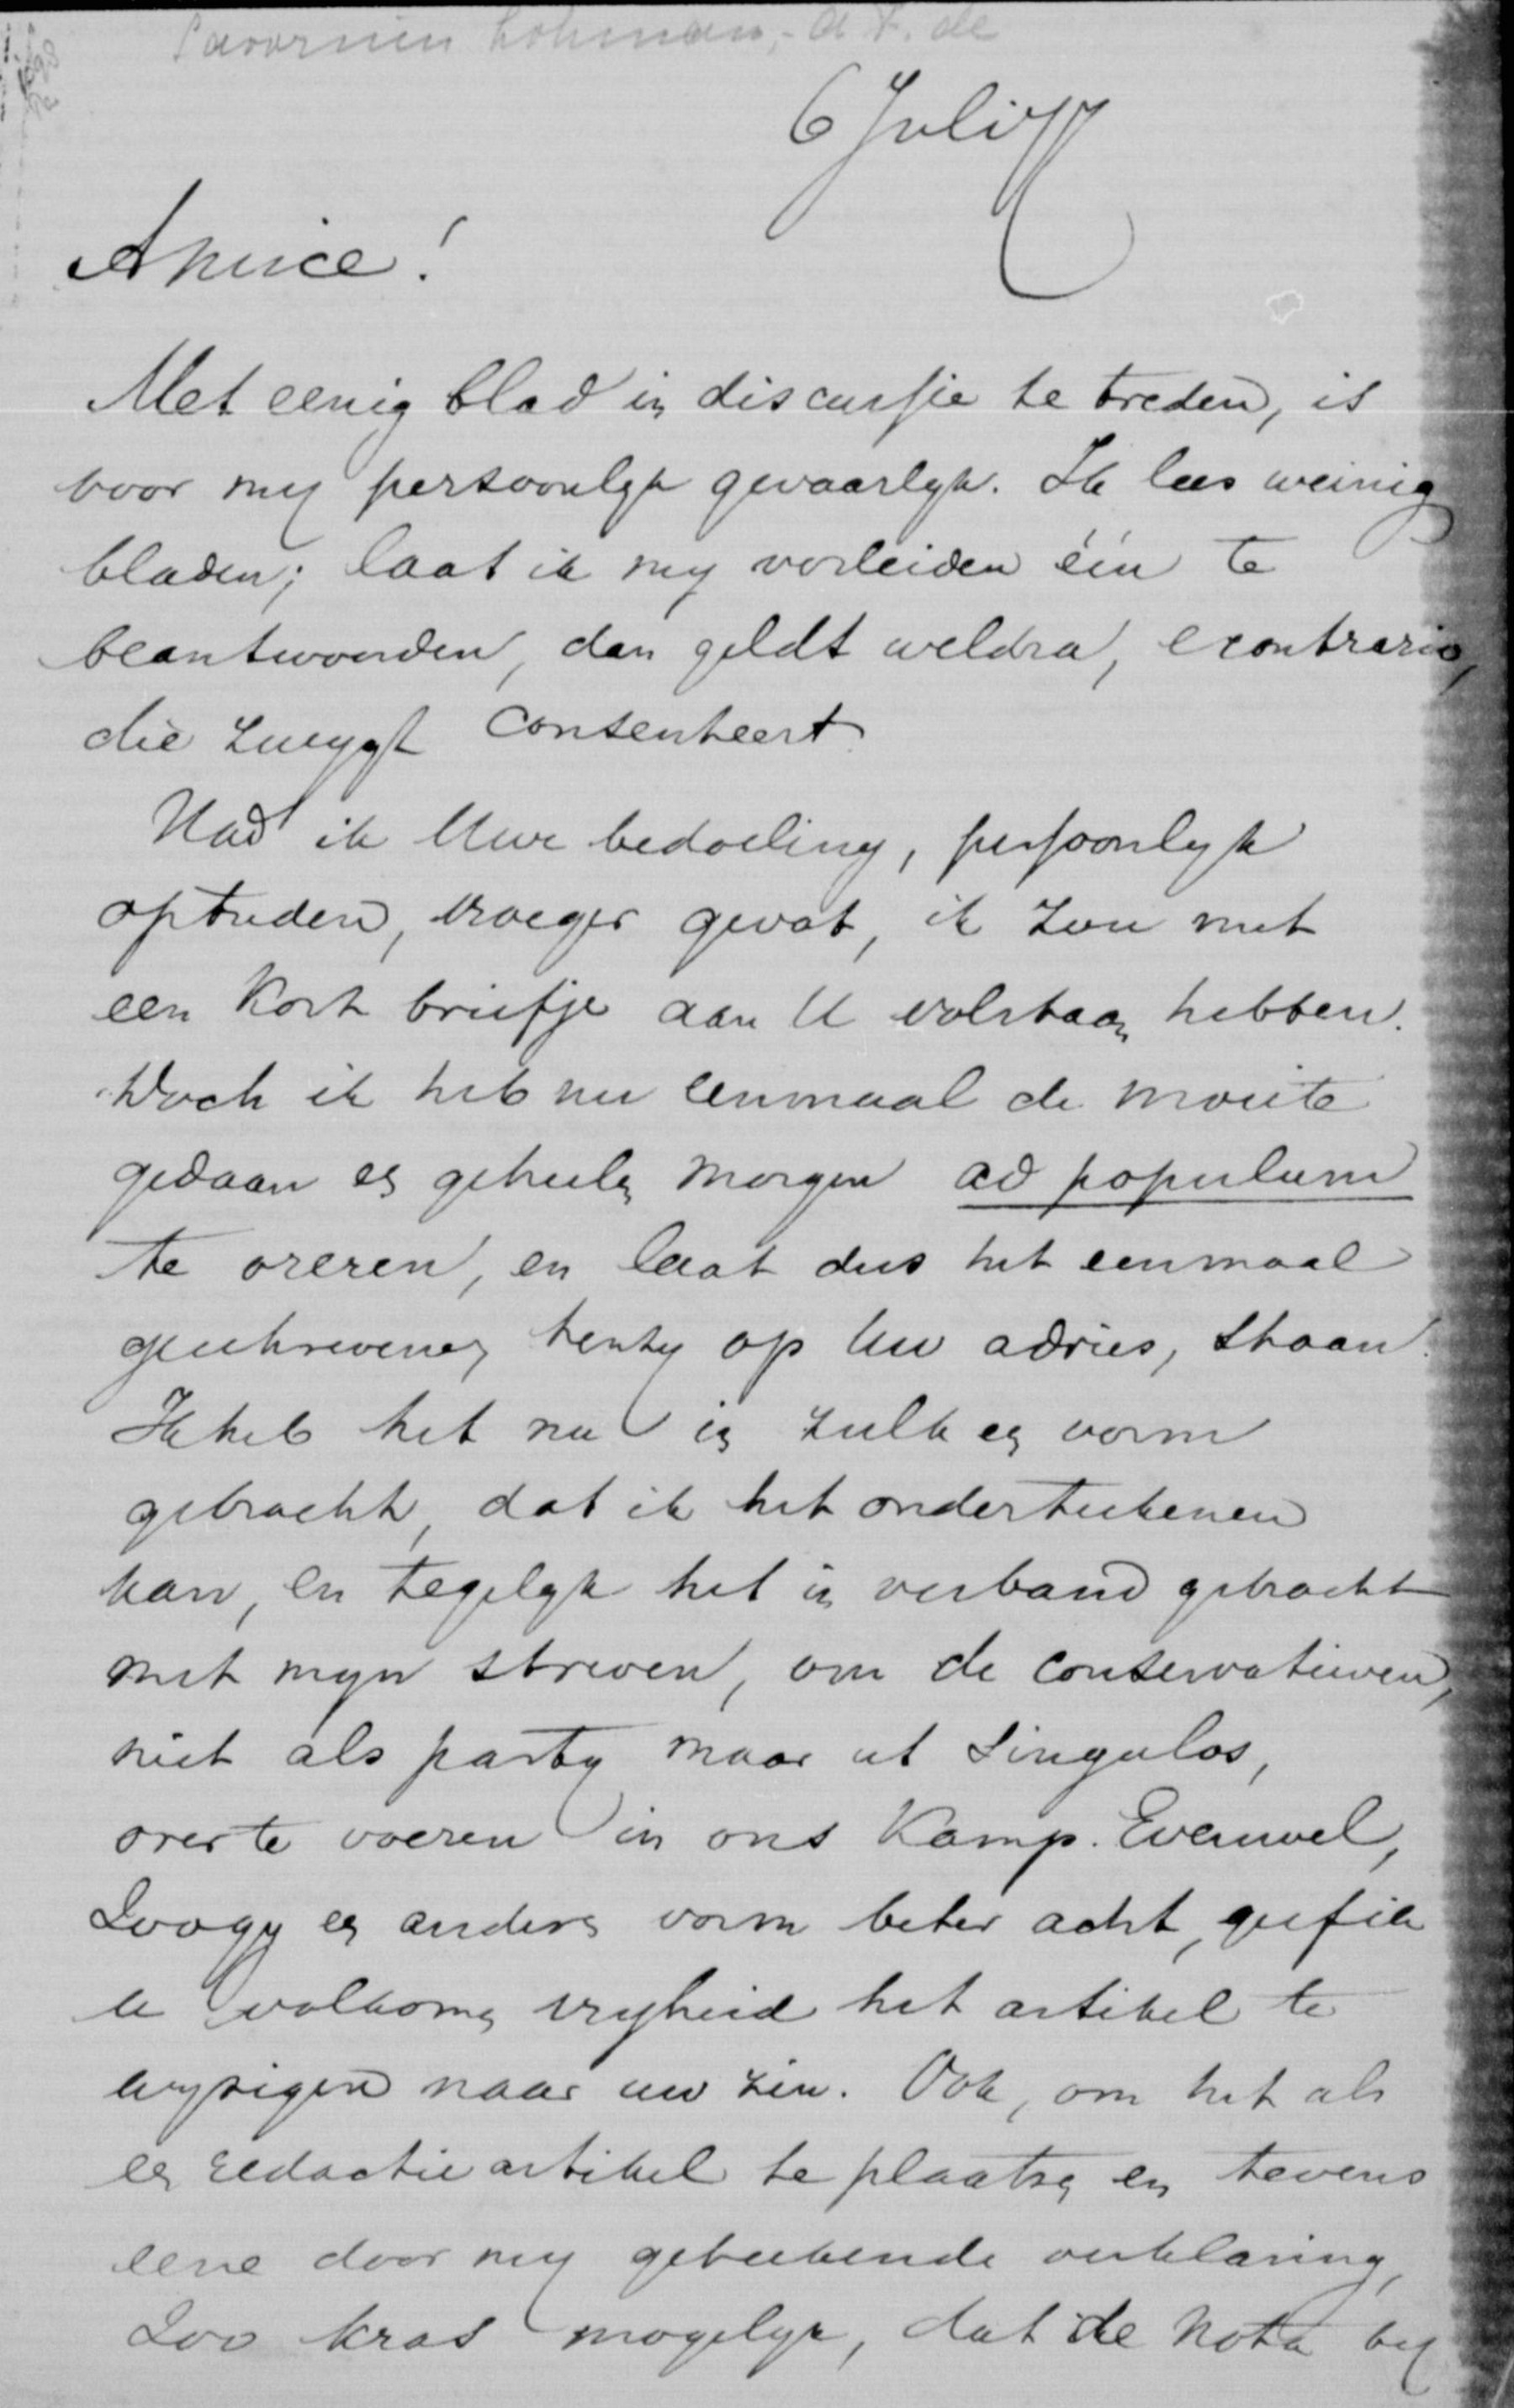 Savornin Lohman, - A. F. de
6 Juli 77
Amice!
Met eenig blad in discussie te treden, is
voor my persoonlyk gevaarlyk. Ik lees weinig
bladen; laat ik my verleiden één te
beantwoorden, dan geldt weldra, e contrario,
die zwygt consenteert
Had ik Uwe bedoeling, persoonlyk
optreden, vroeger gevat, ik zou met
een kort briefje aan U volstaan hebben.
Doch ik heb nu eenmaal de moeite
gedaan en geheelen morgen ad populum
te oreren, en laat dus het eenmaal
geschrevene, tenzy op Uw advies, staan.
Ik heb het nu in zulk en vorm
gebracht, dat ik het onderteekenen
kan, en tegelyk het in verband gebracht
met myn streven, om de conservatieven,
niet als party maar ut singulos,
over te voeren in ons kamp. Evenwel,
Zoo gy en anderen vorm beter acht, geef ik
u volkomen vryheid het artikel te
wyzigen naar uw zin. Ook, om het als
en redactie artikel te plaatsen en tevens
eene door my geteekende verklaring,
Zoo kras mogelyk, dat de nota by